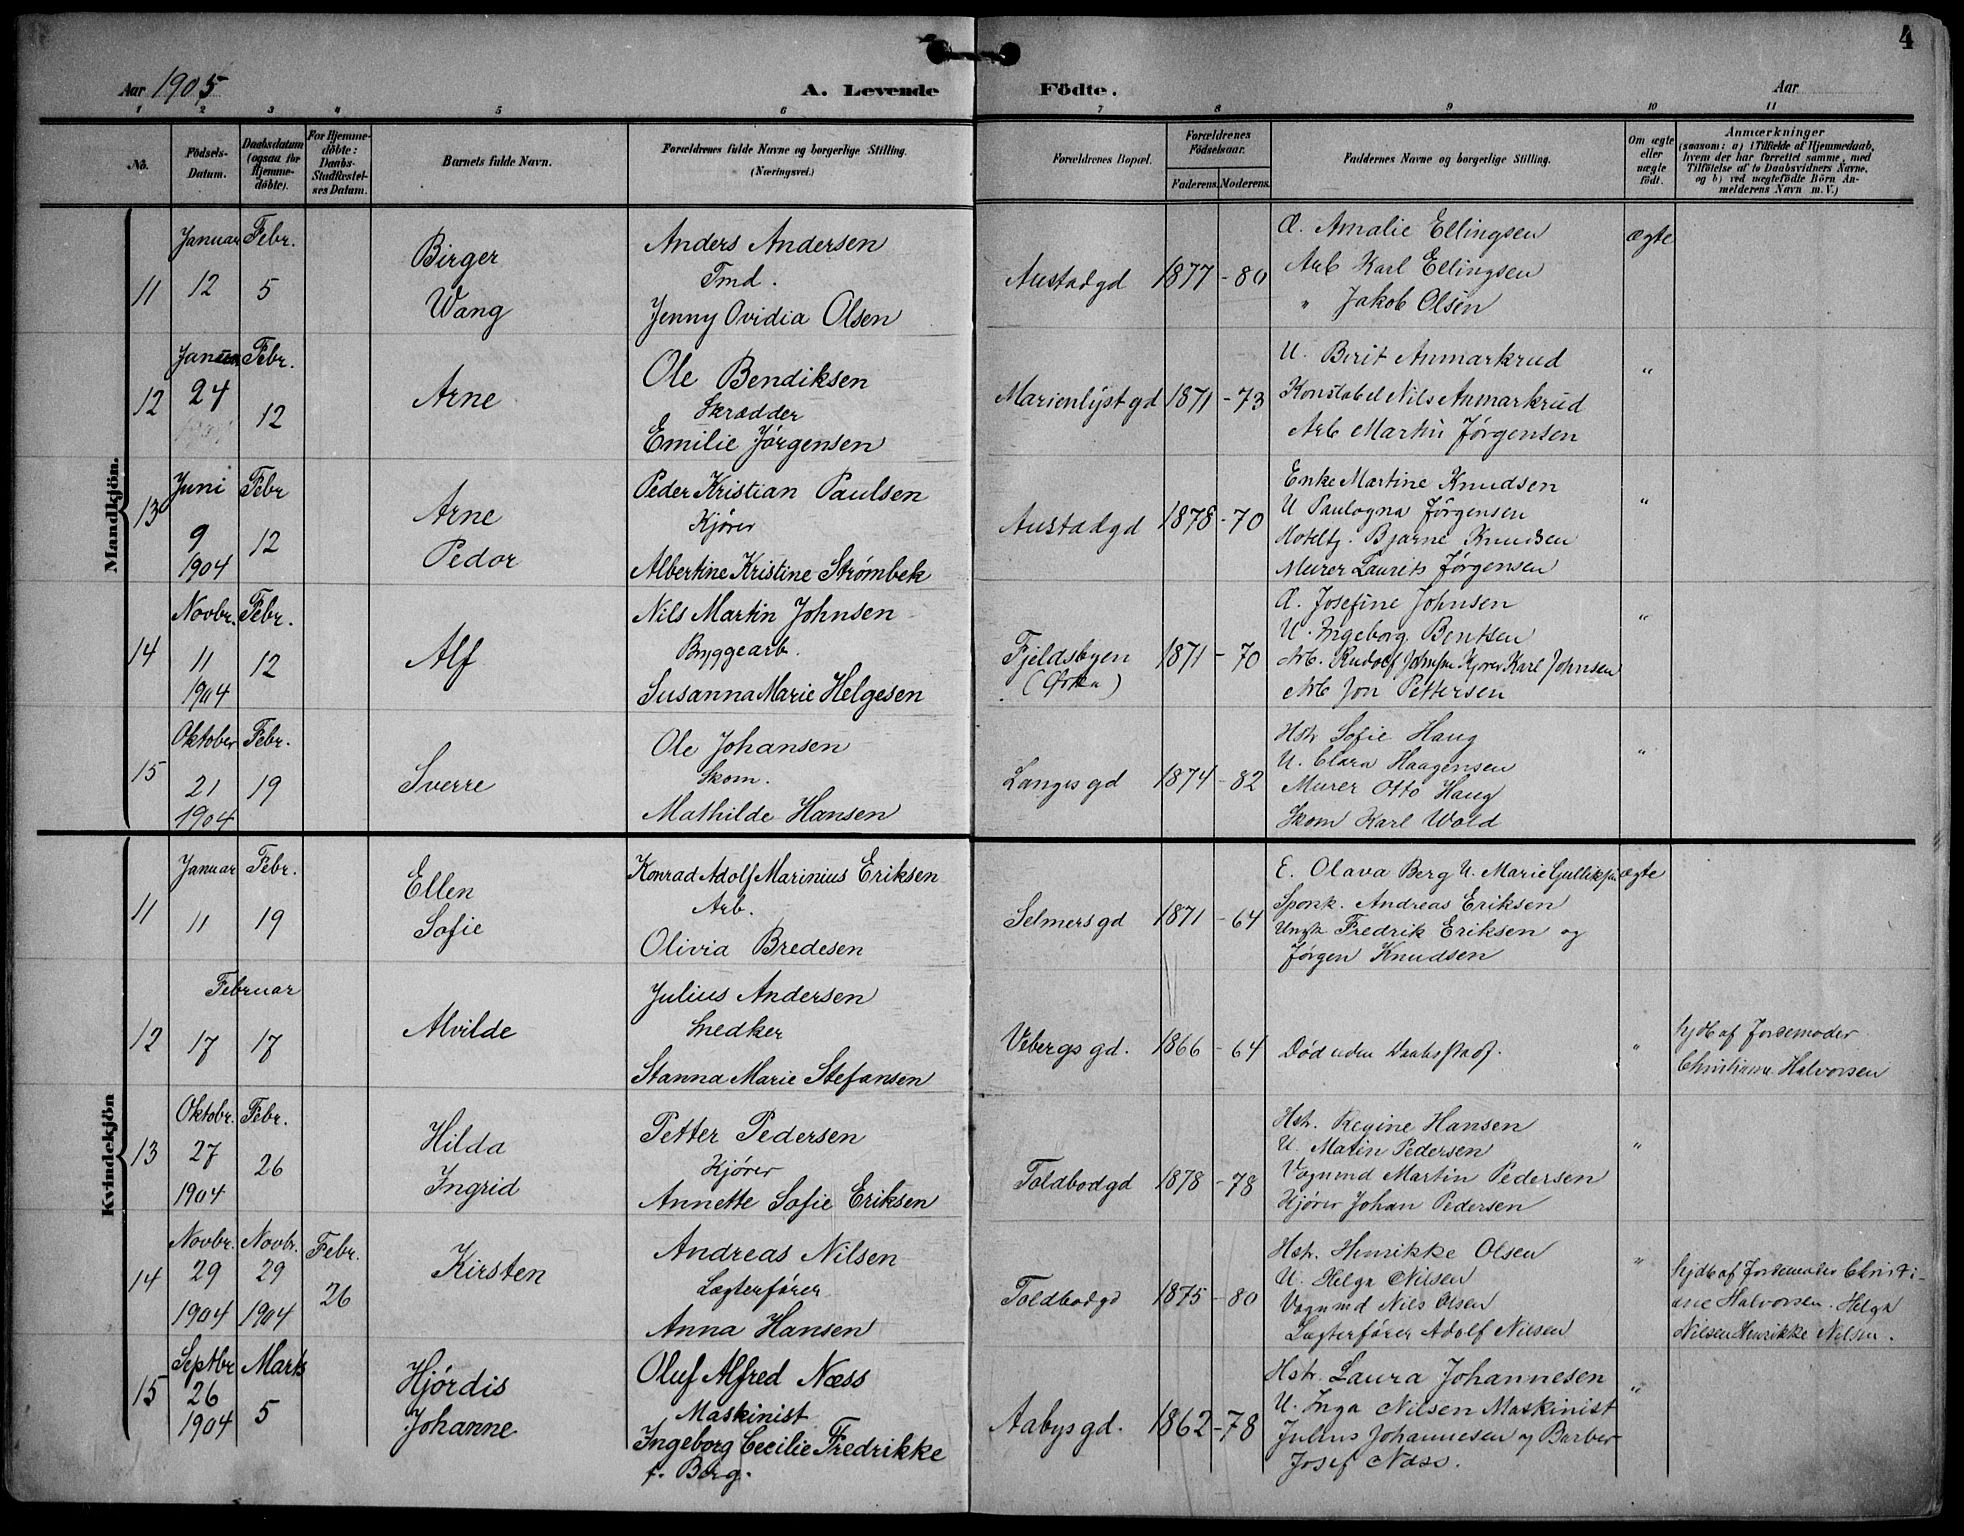 4
Aar 1905
A. Levende Födte.
Aar
1 2 3 4 5 6 7 8 9 10 11
No.
Födsels-Datum.
Daabsdatum (ogsaa för Hjemme-döbte).
For Hjemme-döbte: Daabs-Stadfæstel-ses Datum.
Barnets fulde Navn.
Forældrenes fulde Navne og borgerlige Stilling.
(Næringsvei.)
Forældrenes Bopæl.
Forældrenes Födselsaar.
Faderens. Moderens.
Faddernes Navne og borgerlige Stilling.
Om ægte eller uægte födt.
Anmærkninger
(saasom: a) i Tilfælde af Hjemmedaab,
hvem der har forrettet samme, med
Tilföielse af to Daabsvidners Navne,
og b) ved uægtefödte Börn An-
melderens Navn m. V.)
Mandkjön.
11
Januar 12
Febr. 5
Birger
Wang
Anders Andersen
Tmd.
Jenny Ovidia Olsen
Austadgd
1877 - 80
Æ. Amalie Ellingsen
Arb Karl Ellingsen
" Jakob Olsen
ægte
12
Januar 24
Febr. 12
Arne
Ole Bendiksen
Skrædder
Emilie Jørgensen
Marienlyst gd
1871 - 73
U. Berit Anmarkrud
Konstabel Nils Anmarkrud
Arb Martin Jørgensen
"
13
Juni 9 1904
Febr 12
Arne
Peder
Peder Kristian Paulsen
Kjører
Albertine Kristine Strømbek
Austadgd
1878 - 70
Enke Martine Knudsen
U Paulogna Jørgensen
Hotelbj. Bjarne Knudsen
Murer Laurits Jørgensen
"
14
Novbr. 11 1904
Febr. 12
Alf
Nils Martin Johnsen
Bryggearb.
Susanna Marie Helgesen
Fjeldsbyen
1871 - 70
Æ. Josefine Johnsen
U. Ingeborg Bentsen
Arb. Rudolf Johnsen Kjører Karl Johnsen
Arb Jon Pettersen
"
15
Oktober 21 1904
Febr. 19
Sverre
Ole Johansen
Skom.
Mathilde Hansen
Langes gd
1874 - 82
Hstr Sofie Haug
U. Clara Haagensen
Murer Otto Haug
Skom Karl Wold
"
Kvindekjön
11
Januar 11
Febr. 19
Ellen
Sofie
Konrad Adolf Marinius Eriksen
Arb.
Olivia Bredesen
Selmers gd
1871 - 64
E. Olava Berg U. Marie Gulliksen
Sponk. Andreas Eriksen
Ungk Fredrik Eriksen og
Jørgen Knudsen
ægte
12
Februar
17 17
Alvilde
Julius Andersen
Snedker
Stanna Marie Stefansen
Vebergs gd.
1866 - 64
Død uden Daabsstadf.
"
hjdb af Jordemoder
Christiane Halvorsen
13
Oktobr. 27 1904
Febr. 26
Hilda
Ingrid
Petter Pedersen
Kjører
Annette Sofie Eriksen
Toldbodgd
1878 - 78
Hstr. Regine Hansen
U. Matin Pedersen
Vognmd Martin Pedersen
Kjører Johan Pedersen
"
14
Novbr. 29 1904
Novbr. 29 1904
Febr. 26
Kirsten
Andreas Nilsen
Lægterfører
Anna Hansen
Toldbodgd
1875 - 80
Hstr. Henrikke Olsen
U. Helga Nilsen
Vognmd Nils Olsen
Lægterfører Adolf Nilsen
"
hjdb af Jordemoder Christi-
ane Halvorsen. Helga
Nilsen Henrikke Nilsen.
15
Septbr 26 1904
Marts 5
Hjørdis
Johanne
Oluf Alfred Næss
Maskinist
Ingeborg Cecilie Fredrikke
f. Berg.
Aabys gd.
1862 - 78
Hstr. Laura Johannesen
U. Inga Nilsen Maskinist
Julius Johannesen og Barber
Josef Næss.
"